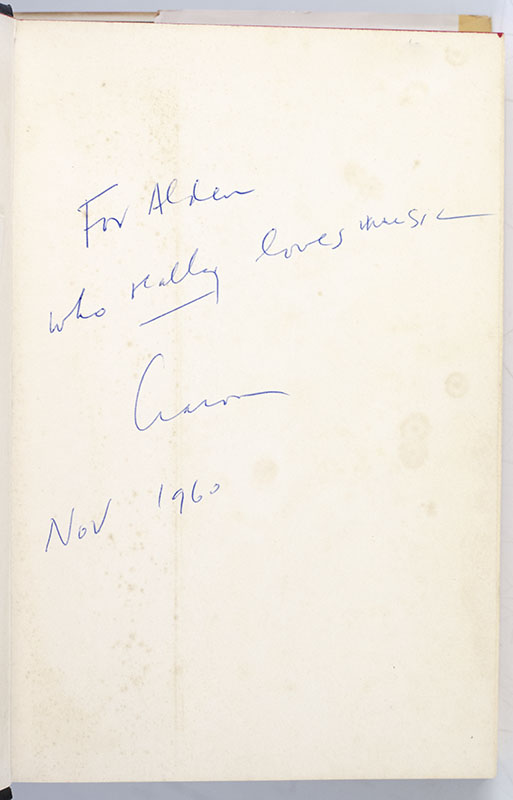 For Alden
who really loves music
Aaron
Nov 1960